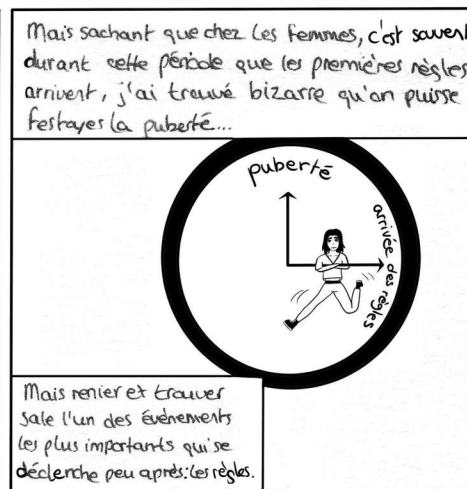 Mais sachant que chez les femmes, c'est souvent
durant cette période que les premières règles
arrivent, j'ai trouvé bizarre qu'on puisse
festoyer la puberté...
puberté
arrivée des règles
Mais renier et trouver
sale l'un des événements
les plus importants qui se
déclenche peu après: les règles.